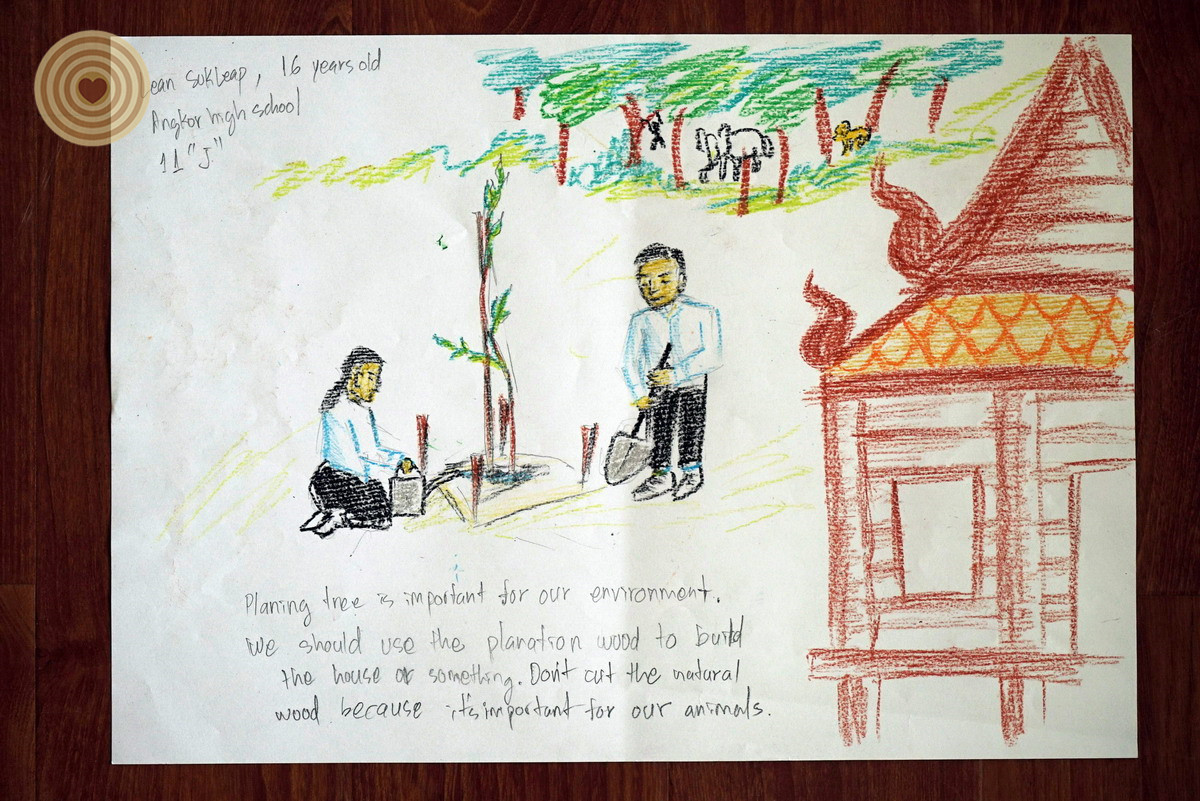 ean sukLeap, 16 years old
Angkor high school
11 "J"
Planing tree is important for our environment.
we should use the planation wood to build
the house or something. Don't cut the natural
wood because it's important for our animals.